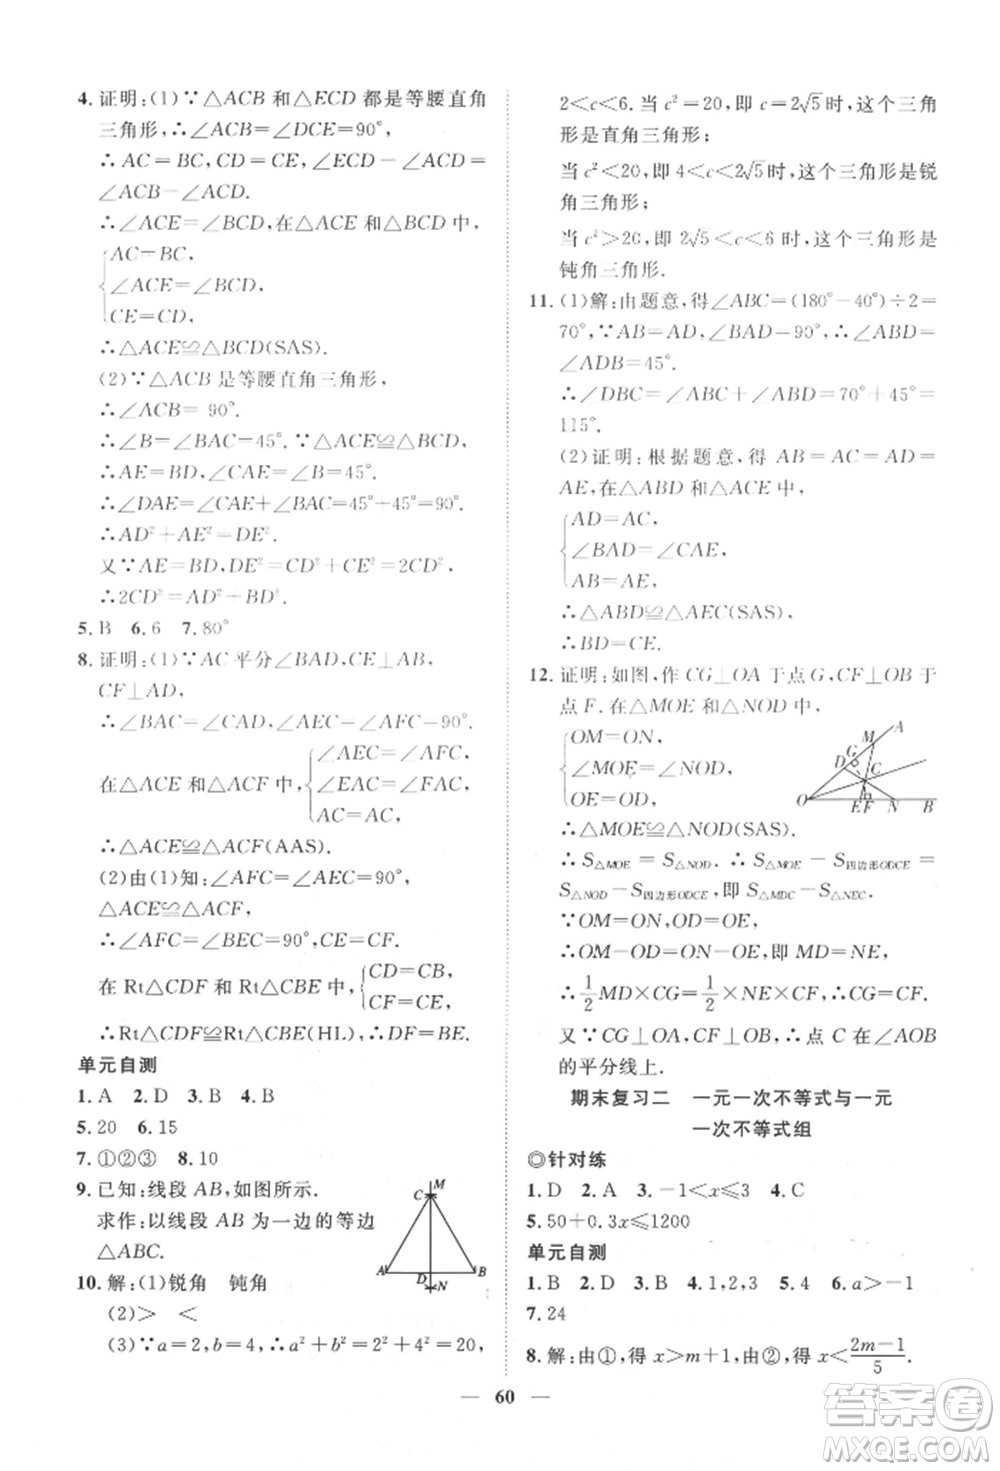 4. 证明:(1)∵△ACB 和△ECD 都是等腰直角
三角形,∴∠ACB=∠DCE=90°,
∴AC=BC,CD=CE,∠ECD-∠ACD=
∠ACB-∠ACD.
∴∠ACE=∠BCD,在△ACE 和△BCD 中,
AC=BC,
∠ACE=∠BCD,
CE=CD,
∴△ACE≌△BCD(SAS).
(2)∵△ACB是等腰直角三角形,
∴∠ACB=90°.
∴∠B=∠BAC=45°.∵△ACE≌△BCD,
∴AE=BD,∠CAE=∠B=45°.
∴∠DAE=∠CAE+∠BAC=45°+45°=90°.
∴AD²+AE²=DE².
又∵AE=BD,DE²=CD²+CE²=2CD²,
∴2CD²=AD²+BD².
5.B 6.6 7.80°
8. 证明:(1)∵AC 平分∠BAD,CE⊥AB,
CF⊥AD,
∴∠BAC=∠CAD,∠AEC=∠AFC=90°.
在△ACE和△ACF 中,
∠AEC=∠AFC,
∠EAC=∠FAC,
AC=AC,
∴△ACE≌△ACF(AAS).
(2)由(1)知:∠AFC=∠AEC=90°,
△ACE≌△ACF,
∴∠AFC=∠BEC=90°,CE=CF.
在 Rt△CDF 和 Rt△CBE中,
CD=CB,
CF=CE,
∴Rt△CDF≌Rt△CBE(HL),∴DF=BE.
单元自测
1.A 2.D 3.B 4.B
5.20 6.15
7.①②③ 8.10
9. 已知:线段 AB,如图所示.
求作:以线段 AB 为一边的等边
△ABC.
C M
A D N B
10. 解:(1)锐角 钝角
(2)> <
(3)∵a=2,b=4,∴a²+b²=2²+4²=20,
2<c<6. 当 c²=20,即 c=2√5时,这个三角
形是直角三角形;
当 c²<20,即 4<c<2√5时,这个三角形是锐
角三角形;
当 c²>20,即 2√5<c<6 时,这个三角形是
钝角三角形.
11. (1)解:由题意,得∠ABC=(180°-40°)÷2=
70°,∵AB=AD,∠BAD=90°,∴∠ABD=
∠ADB=45°.
∴∠DBC=∠ABC+∠ABD=70°+45°=
115°.
(2)证明:根据题意,得 AB=AC=AD=
AE,在△ABD 和△ACE 中,
AD=AC,
∠BAD=∠CAE,
AB=AE,
∴△ABD≌△AEC(SAS).
∴BD=CE.
12. 证明:如图,作 CG⊥OA 于点G,CF⊥OB 于
点 F. 在△MOE 和△NOD 中,
OM=ON,
∠MOE=∠NOD,
OE=OD,
A
M
G
D
C
O E F N B
∴△MOE≌△NOD(SAS).
∴S△MOE=S△NOD. ∴S△MOE-S四边形ODCE=
S△NOD-S四边形ODCE,即 S△MDC=S△NEC.
∵OM=ON,OD=OE,
∴OM-OD=ON-OE,即 MD=NE,
∴1/2 MD×CG=1/2×NE×CF,∴CG=CF.
又∵CG⊥OA,CF⊥OB,∴点 C 在∠AOB
的平分线上.
期末复习二 一元一次不等式与一元
一次不等式组
◎针对练
1.D 2.A 3.-1<x≤3 4.C
5.50+0.3x≤1200
单元自测
1.B 2.D 3.B 4.1,2,3 5.4 6.a>-1
7.24
8. 解:由①,得 x>m+1,由②,得 x<(2m-1)/5.
— 60 —
答案卷
MXQE.COM